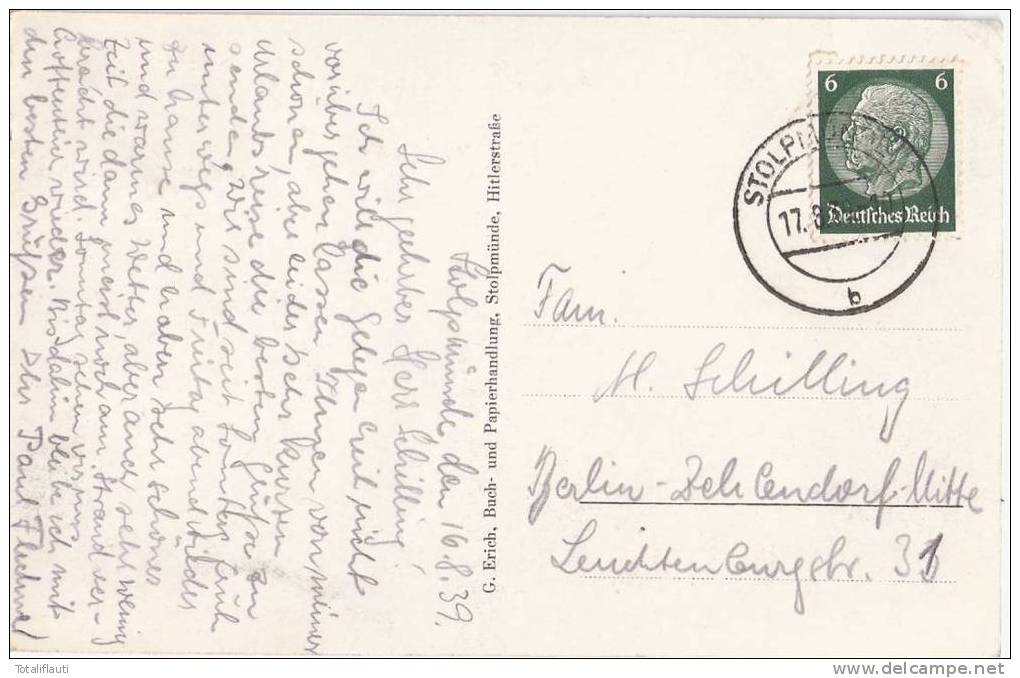 Stolpmünde, den 16.8.39.
Sehr geehrter Herr Schilling!
Ich will die Gelegenheit nicht
vorübergehen lassen Ihnen von meiner
schönen, aber leider sehr kurzen
Urlaubsreise die besten Grüße zu
senden. Wir sind seit Sonntag früh
unterwegs und Freitag abend wieder
zu Hause und haben sehr schönes
und warmes Wetter, aber auch sehr wenig
Zeit die dann meist noch am Strand ver-
bracht wird. Sonntag sehen wir uns
hoffentlich wieder. Bis dahin bleibe ich mit
den besten Grüßen Ihr Paul
G. Erich, Buch- und Papierhandlung, Stolpmünde, Hitlerstraße
6 6
Deutsches Reich
STOLPMÜNDE
17. 8.
b
Fam.
M. Schilling
Berlin-Zehlendorf-Mitte
Leuchtenburgstr. 31
Totaliflauti
www.delcampe.net